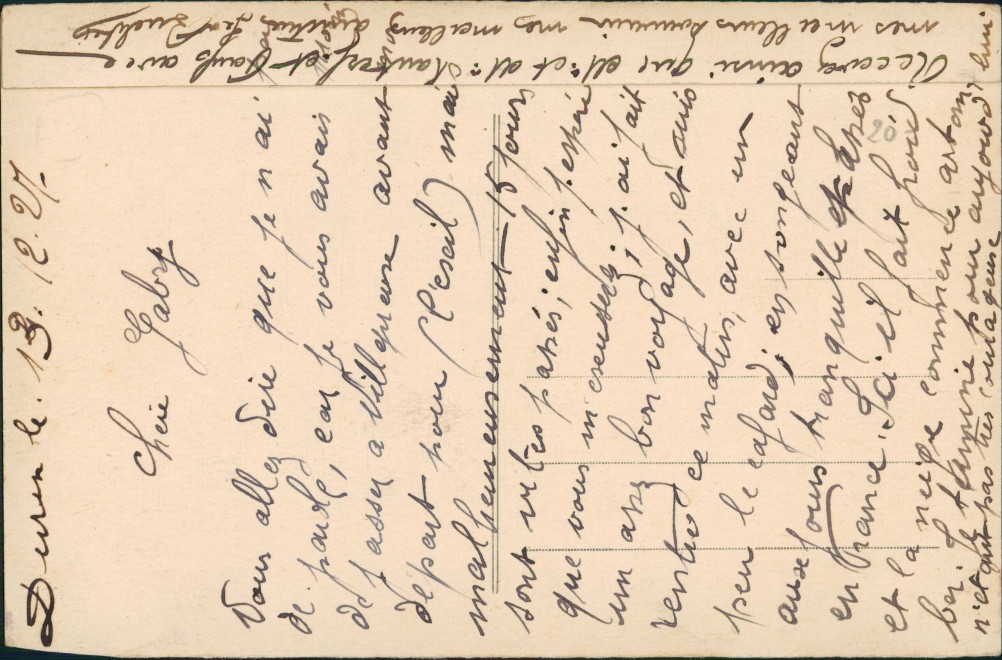 Duren le. 13. 12. 27.
Chère Gaby
Vous allez dire que je n'ai
de parole, car je vous avais
de passer a Villepreux avant
départ pour (l'exil) mai
malheureusement 15 jours
sont vites passés, enfin j'espère
que vous m'excuserez, j'ai fait
un assez bon voyage, et suis
rentré ce matin, avec un
peu le cafard, en songeant
aux jours tranquille passés
en France. Ici il fait froid
et la neige commence a tom
ber. Je termine pour aujourd'hui
n'étant pas très courageux
Recevez ainsi que
mes meilleurs souvenir mes meilleurs amitiés
20